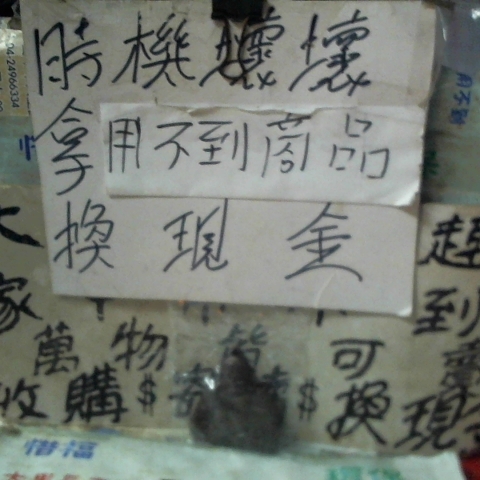 時機壞壞
拿用不到商品
換現金
大
家
趕
到
萬物皆可賣
收購$寄賣$換現金
惜福